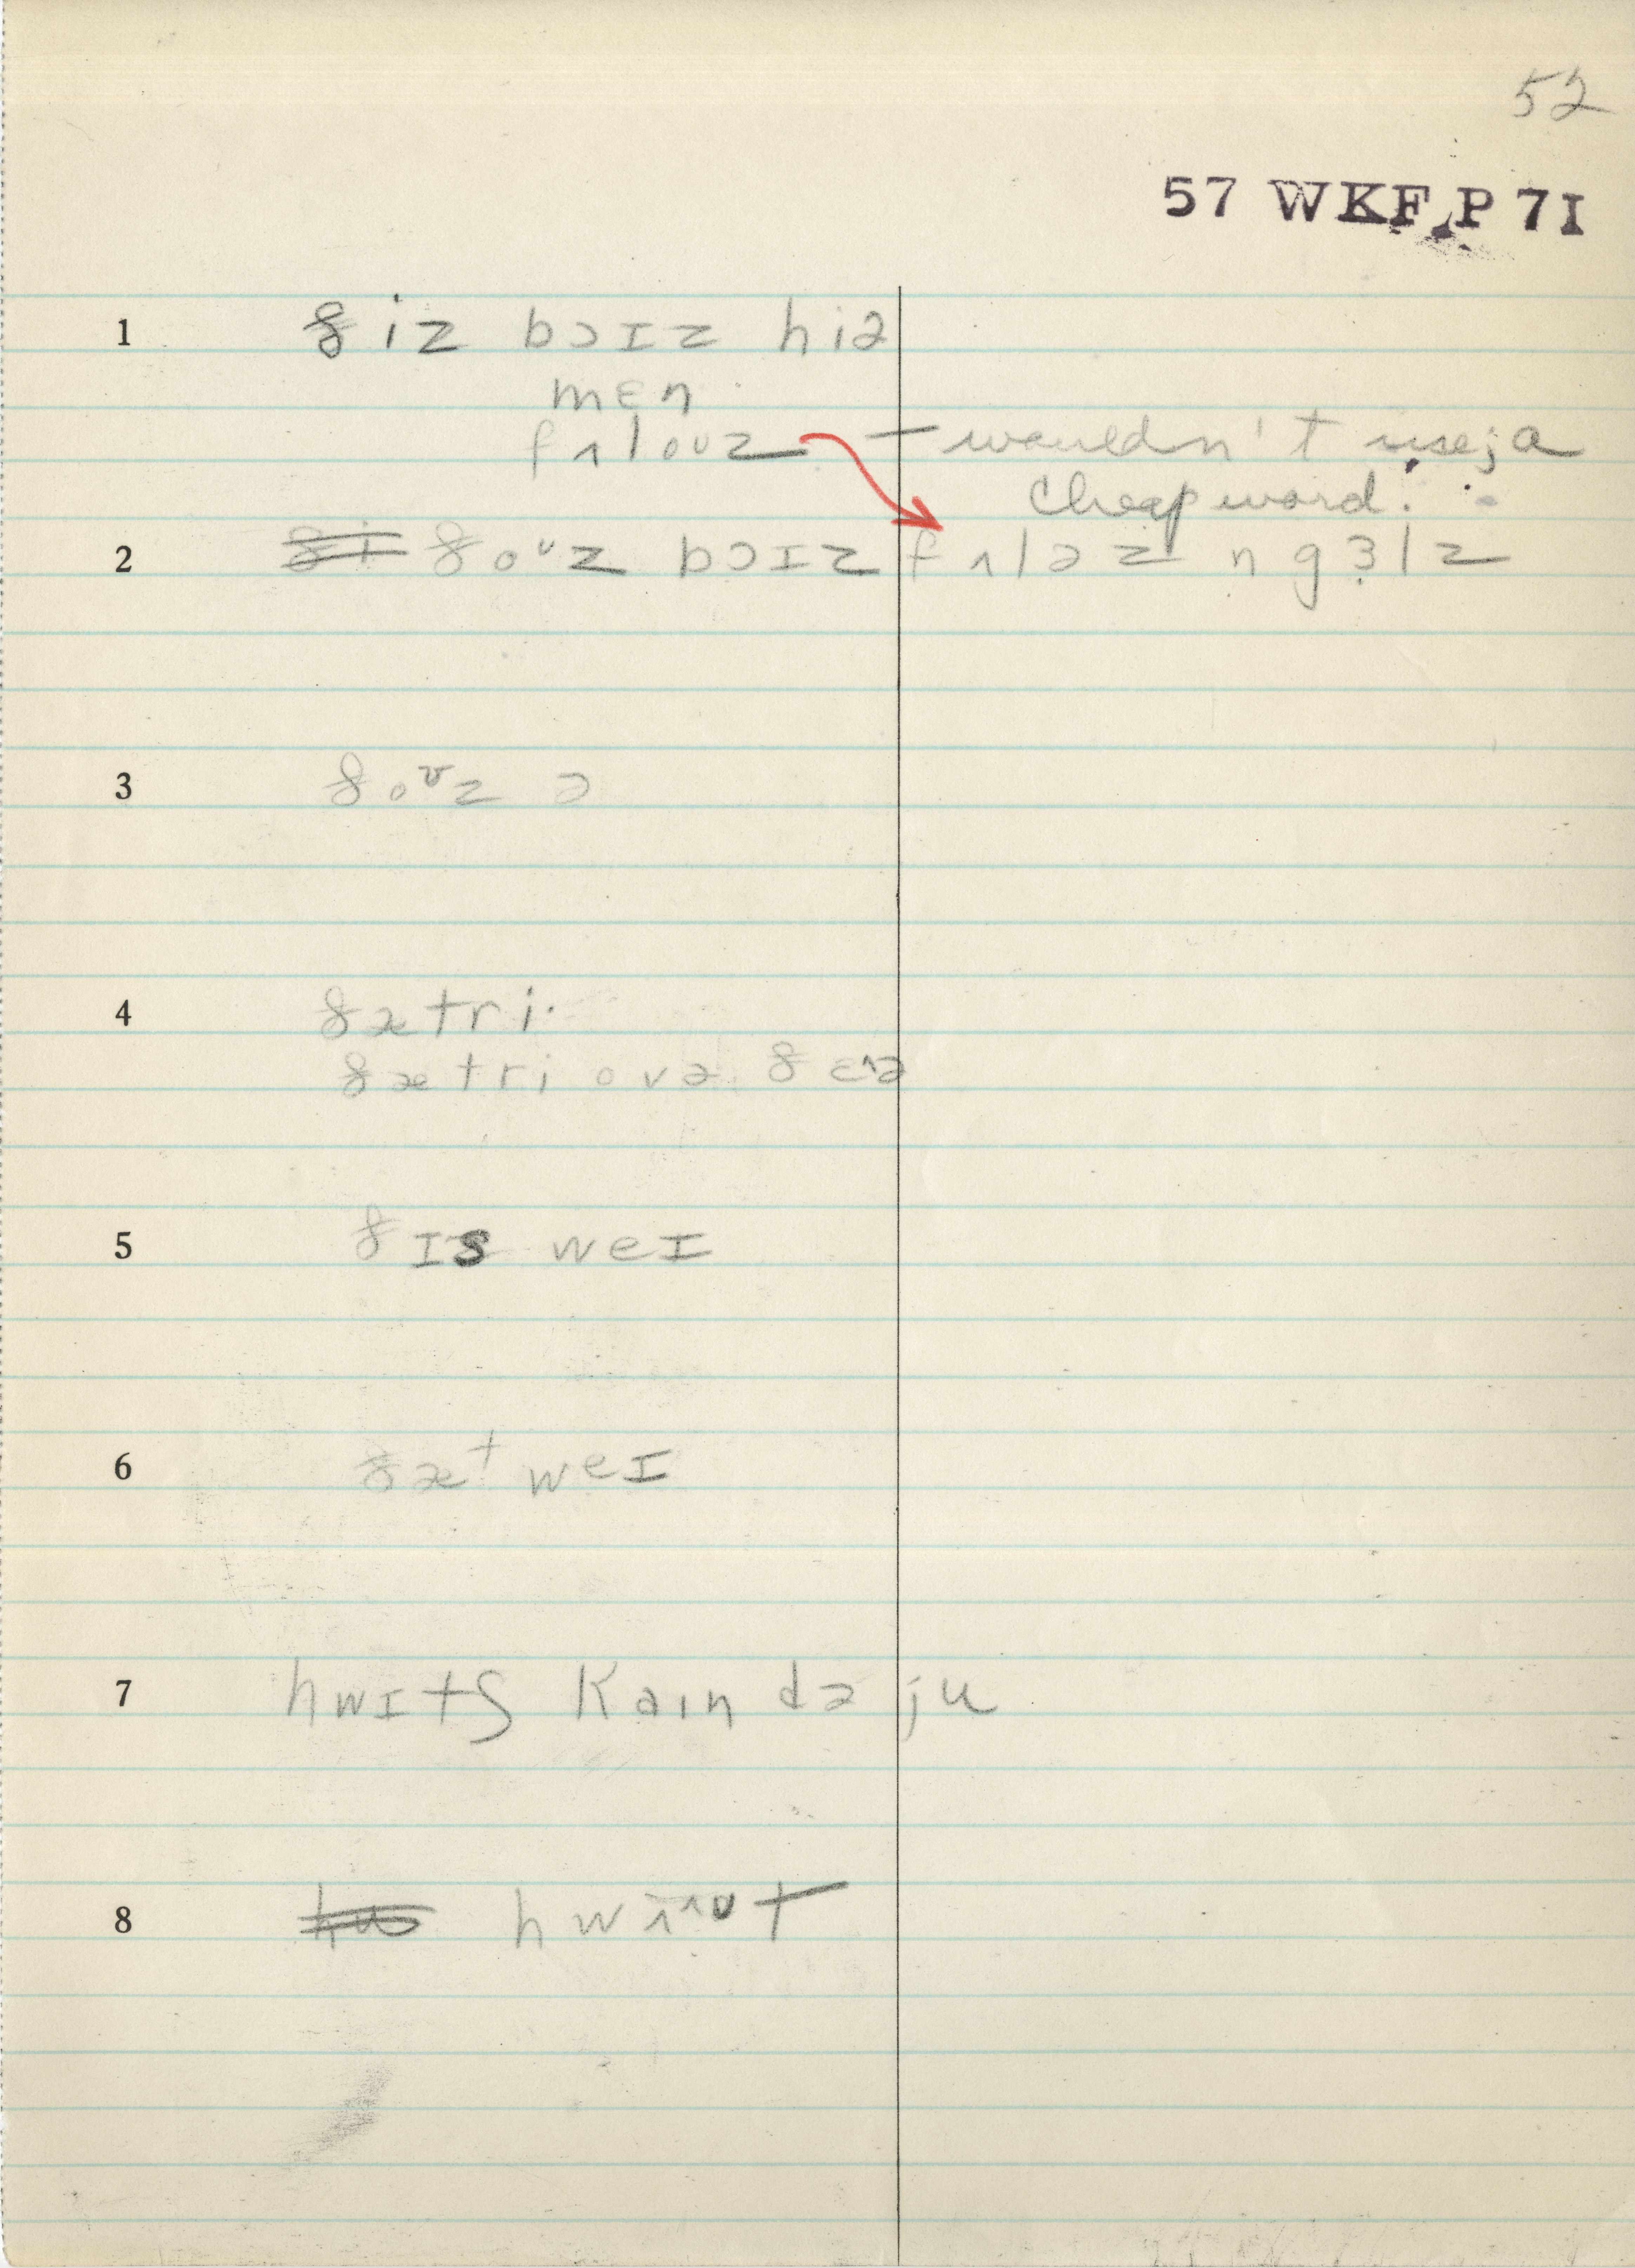 52
57 WKF P 71
1 ðiz bɔɪz hiə
mɛn
fʌloʊz — wouldn't use; a
cheap word.
2 ði ðoᶷz bɔɪz fʌləz n gɜlz
3 ðoᶷz ə
4 ðætri
ðætri ovə ðɛə
5 ðɪs weɪ
6 ðæt weɪ
7 hwɪtʃ kaɪndə ju
8